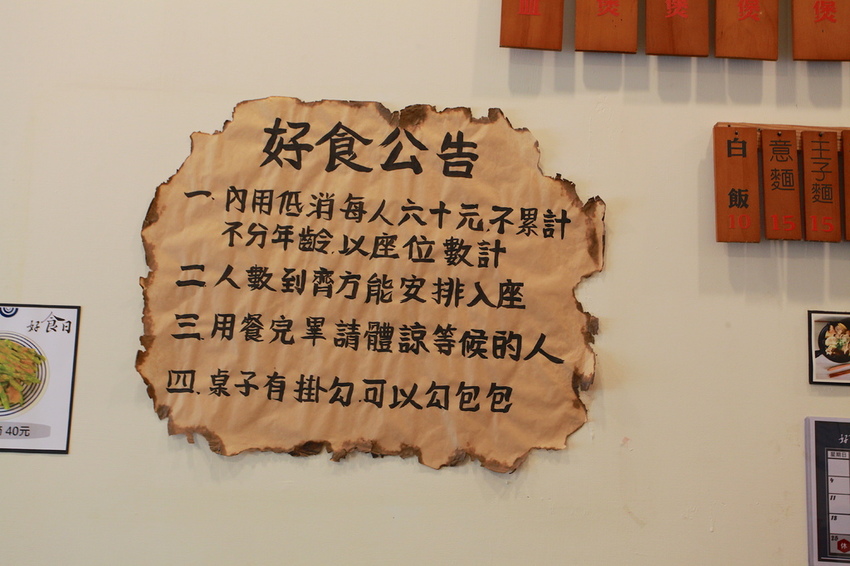 好食公告
一. 內用低消每人六十元.不累計
不分年齡.以座位數計
二 人數到齊方能安排入座
三. 用餐完畢請體諒等候的人
四. 桌子有掛勾.可以勾包包
煲 煲 煲 煲
白飯 10
意麵 15
王子麵 15
好食日
40元
星期日